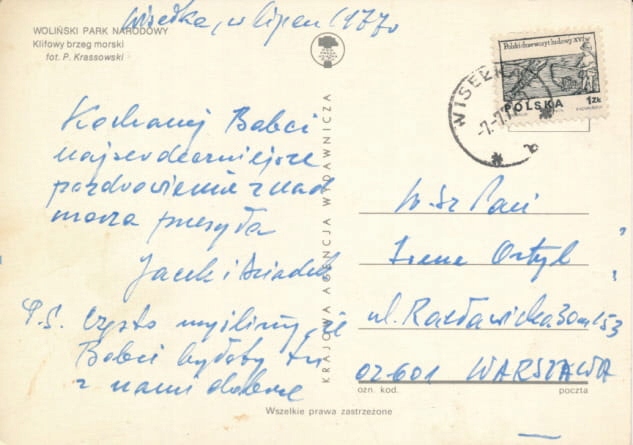 Wisełka, w lipcu 1977
WOLIŃSKI PARK NARODOWY
Klifowy brzeg morski
fot. P. Krassowski
Kochanej Babci
najserdeczniejsze
pozdrowienie znad
morza przesyła
Jacek i Dziadek
P.S. Często myślimy, że
Babci byłoby tu
z nami dobrze
KRAJOWA AGENCJA WYDAWNICZA
Wszelkie prawa zastrzeżone
Polski drzeworyt ludowy XVI w
POLSKA
1 ZŁ
WISEŁKA
-7.-7.
W.Sz Pani
Irena Ortyl
ul. Racławicka 30 m 153
02-601 WARSZAWA
ozn. kod.
poczta